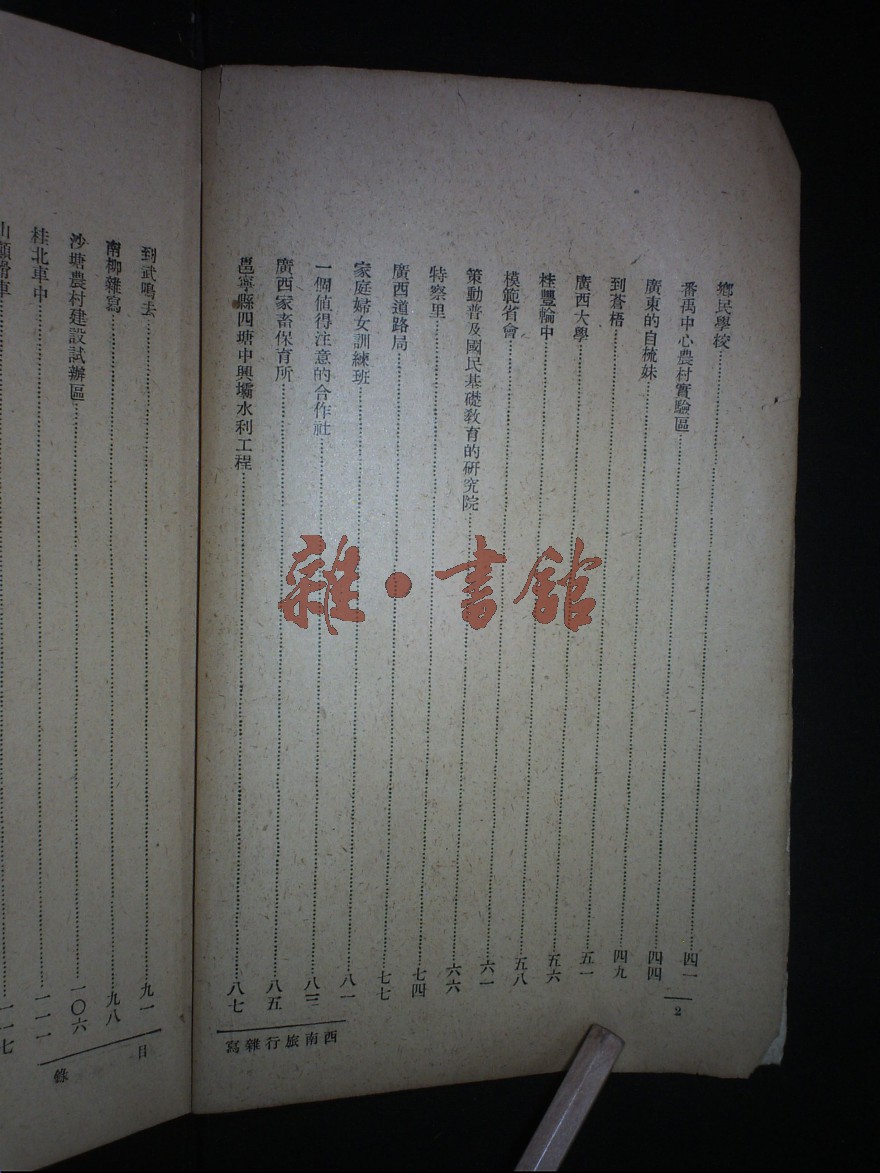 鄉民學校……四一
番禺中心農村實驗區……四四
廣東的自梳妹……四九
到蒼梧……五一
廣西大學……五六
桂豐輪中……五八
模範省會……六一
策動普及國民基礎教育的研究院……六六
特察里……七四
廣西道路局……七七
家庭婦女訓練班……八一
一個值得注意的合作社……八三
廣西家畜保育所……八五
邕寧縣四塘中興壩水利工程……八七
2
西南旅行雜寫
到武鳴去……九一
南柳雜寫……九八
沙塘農村建設試辦區……一〇六
桂北車中……一一一
一一七
目錄
雜·書館